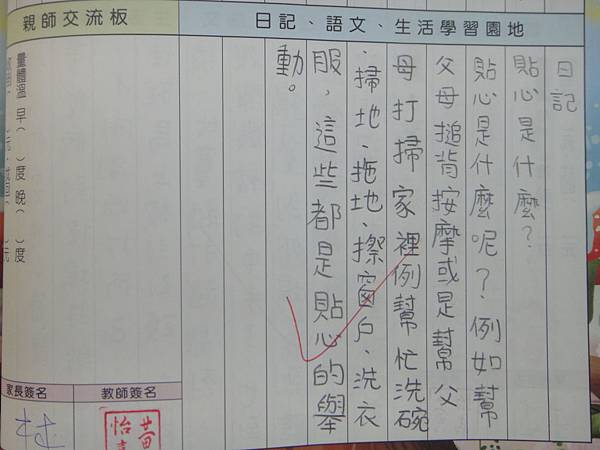 親師交流板
日記、語文、生活學習園地
日記
貼心是什麼?
貼心是什麼呢?例如幫
父母搥背按摩或是幫父
母打掃家裡例幫忙洗碗
、掃地、拖地、擦窗戶、洗衣
服,這些都是貼心的舉
動。
量體溫 早( )度 晚( )度
家長簽名
教師簽名
黃
怡